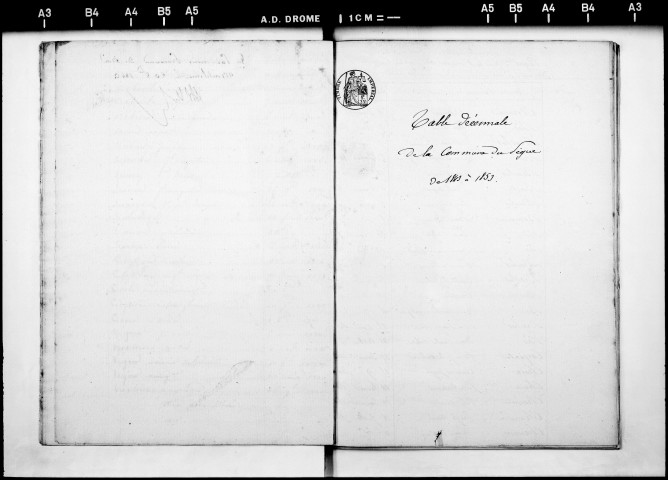 A3 B4 A4 B5 A5 A.D. DROME 1CM A5 B5 A4 B4 A3
Table décennale
de la Commune du Pègue
De 1843 à 1853.